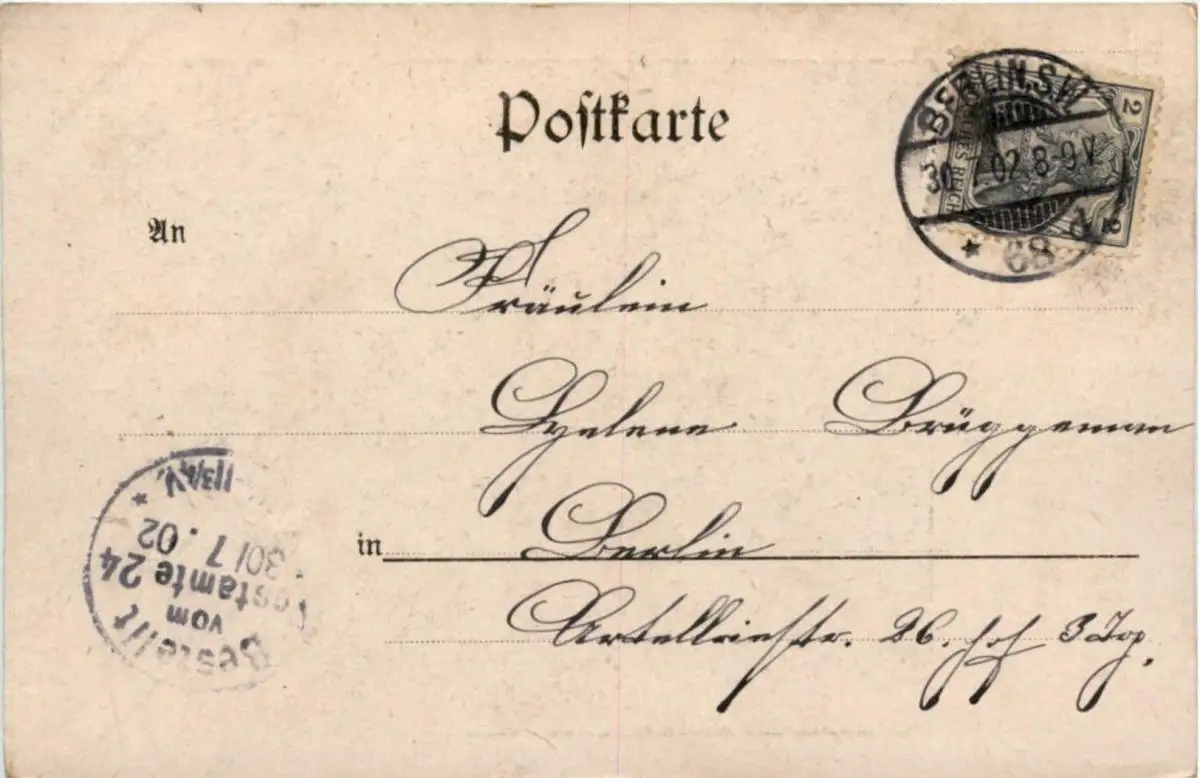 Postkarte
BERLIN. S.W.
30. 7. 02. 8-9V.
* 68 d
DEUTSCHES REICH
2
2
An
Fräulein
Helene Brüggeman
in Berlin
Artelleriestr. 26. Hof 3 Trp.
Bestellt
vom
Postamte 24
30/7. 02